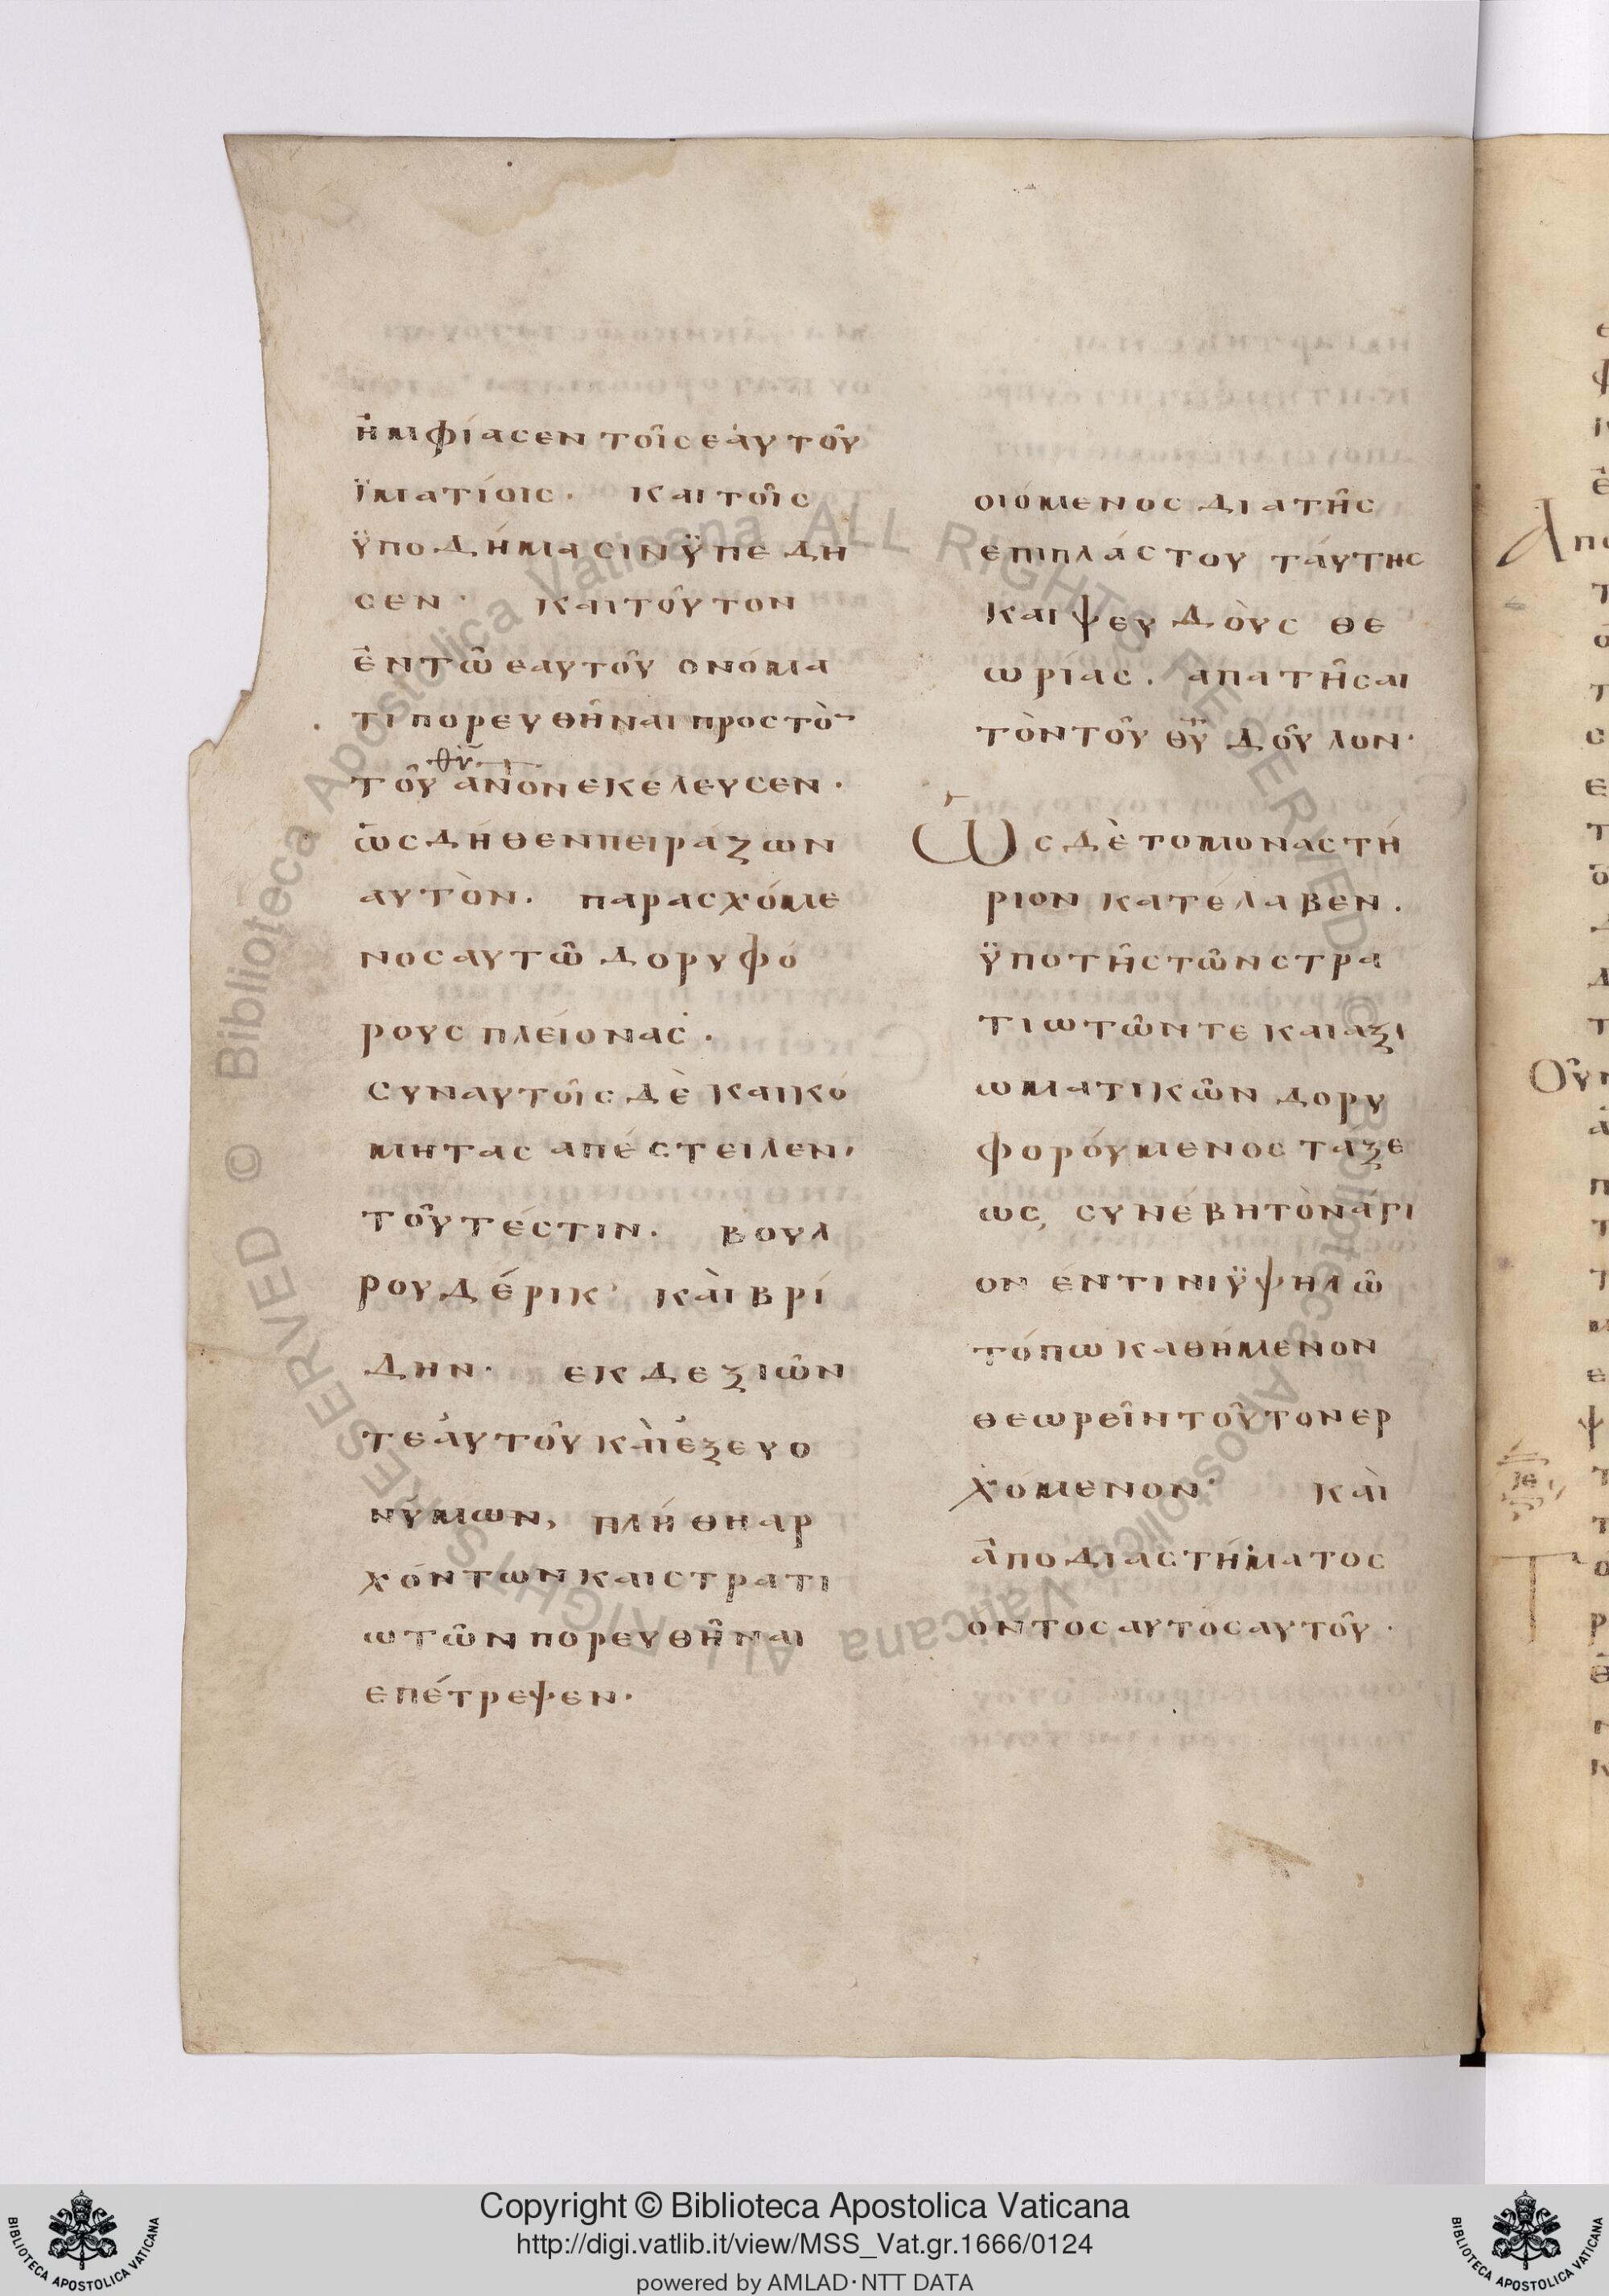 ἠμφίασεν τοῖς ἑαυτοῦ
ϊματίοις· καὶ τοῖς
ϋποδήμασιν ϋπεδη
σεν· καὶ τοῦτον
ἐν τῶ εαυτοῦ ονόμα
τι πορευθῆναι προς τὸν
θυ
τοῦ ανον εκελευσεν·
ὡς δήθεν πειράζων
αυτὸν· παρασχόμε
νος αυτῶ δορυφό
ρους πλείονας·
συν αυτοῖς δὲ και κό
μητας απέστειλεν,
τοῦτέστιν· βουλ
ρουδέρικ· καὶ βρί
δην· εκ δεξιῶν
τε ἁυτοῦ κὰι ἐξ ευο
νύμων, πλήθη αρ
χόντων και στρατι
ωτῶν πορευθῆναι
επέτρεψεν·
οιόμενος δια τῆς
επιπλάστου τάυτης
και ψευδοὺς θε
ωρίας. απατῆσαι
τὸν τοῦ θυ δοῦλον·
Ὡς δὲ το μοναστή
ριον κατέλαβεν.
ϋπο τῆς τῶν στρα
τιωτῶν τε και αξι
ωματικῶν δορυ
φορόυμενος τάξε
ως, συνέβη τὸν άγι
ον έν τινι ϋψηλῶ
τόπω καθήμενον
θεωρεῖν τοῦτον ερ
χόμενον· καὶ
ἀπο διαστήματος
οντος αυτος αυτοῦ·
Copyright © Biblioteca Apostolica Vaticana
http://digi.vatlib.it/view/MSS_Vat.gr.1666/0124
powered by AMLAD·NTT DATA
Biblioteca Apostolica Vaticana ALL RIGHTS RESERVED © Biblioteca Apostolica Vaticana ALL RIGHTS RESERVED ©
BIBLIOTECA APOSTOLICA VATICANA
BIBLIOTECA APOSTOLICA VATICANA